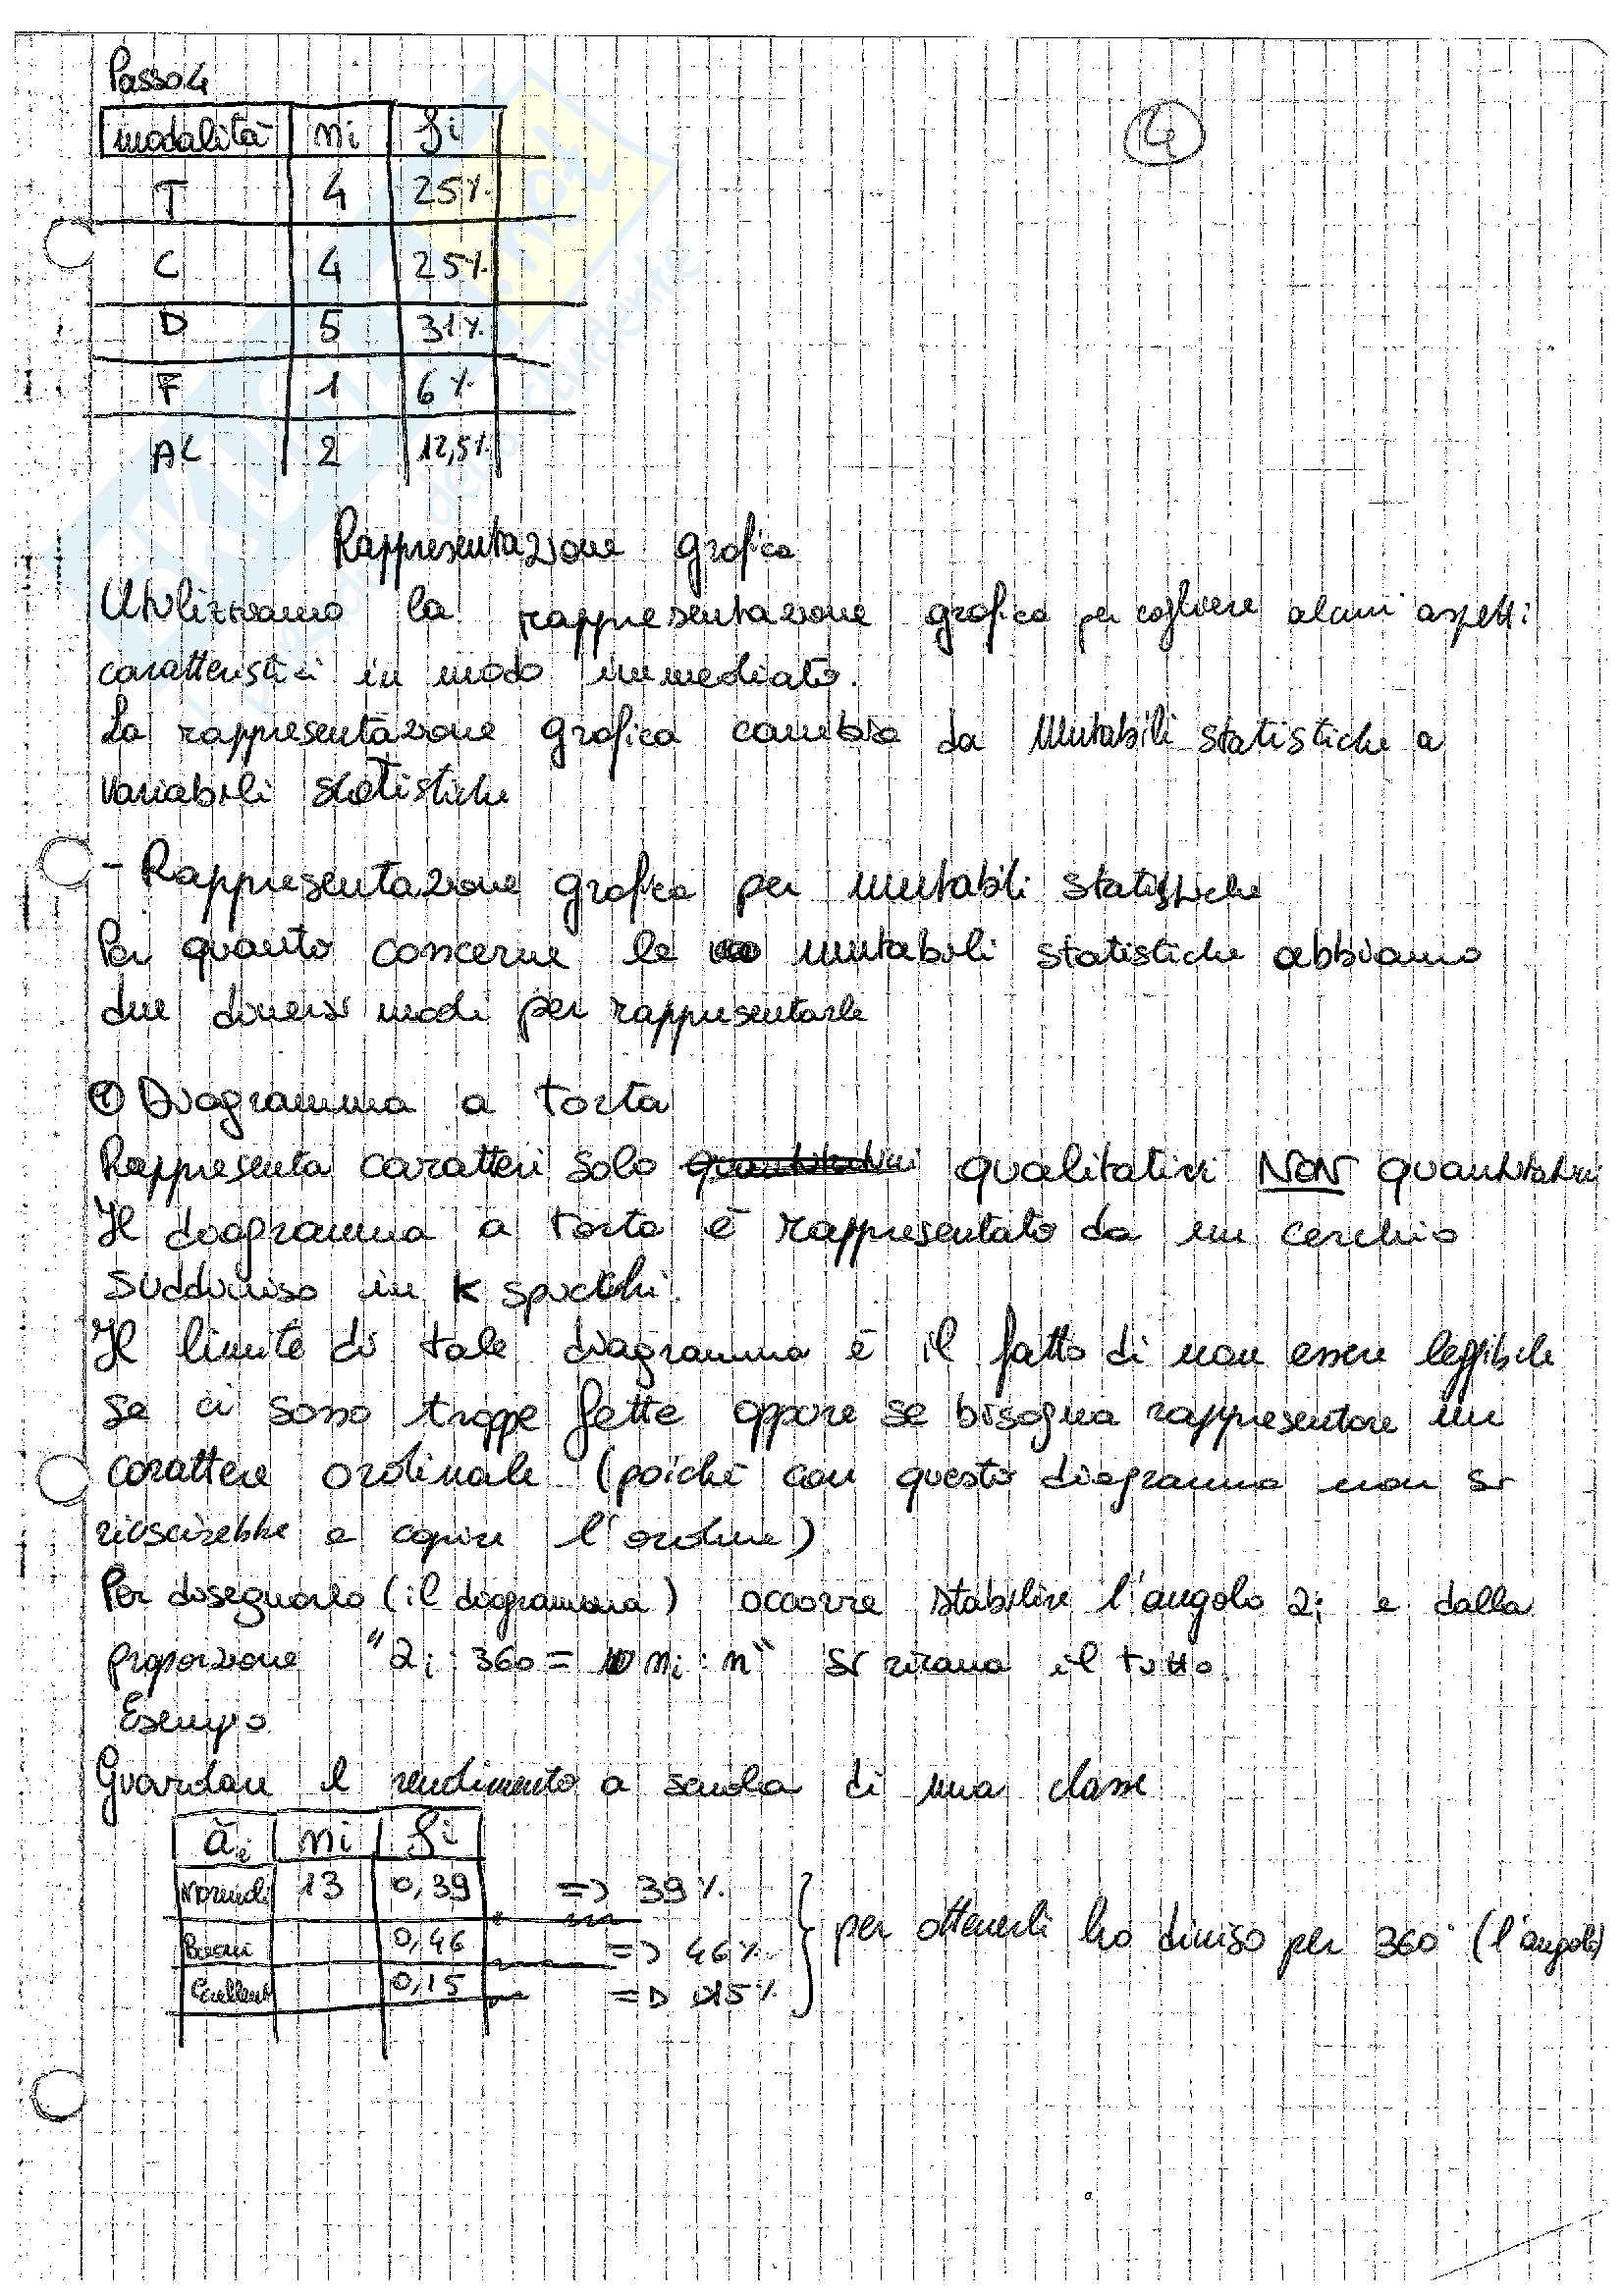 Passo 4
④
modalità ni fi
T 4 25%
C 4 25%
D 5 31%
F 1 6%
AL 2 12,5%
Rappresentazione grafica
Utilizziamo la rappresentazione grafica per cogliere alcuni aspetti
caratteristici in modo immediato.
La rappresentazione grafica cambia da Mutabili statistiche a
variabili statistiche
- Rappresentazione grafica per mutabili statistiche
Per quanto concerne le mutabili statistiche abbiamo
due diversi modi per rappresentarle
① Diagramma a torta
Rappresenta caratteri solo quantitativi qualitativi NON quantitativi
Il diagramma a torta è rappresentato da un cerchio
suddiviso in K spicchi.
Il limite di tale diagramma è il fatto di non essere leggibile
se ci sono troppe fette oppure se bisogna rappresentare un
carattere ordinale (poiché con questo diagramma non si
riuscirebbe a capire l'ordine)
Per disegnarlo (il diagramma) occorre stabilire l'angolo αi e dalla
proporzione "αi : 360 = ni : n" si ricava il tutto.
Esempio
Guardare il rendimento a scuola di una classe
ai ni fi
13 0,39 => 39%
Buoni 0,46 => 46%
Eccellenti 0,15 => 15%
per ottenerli ho diviso per 360° (l'angolo)